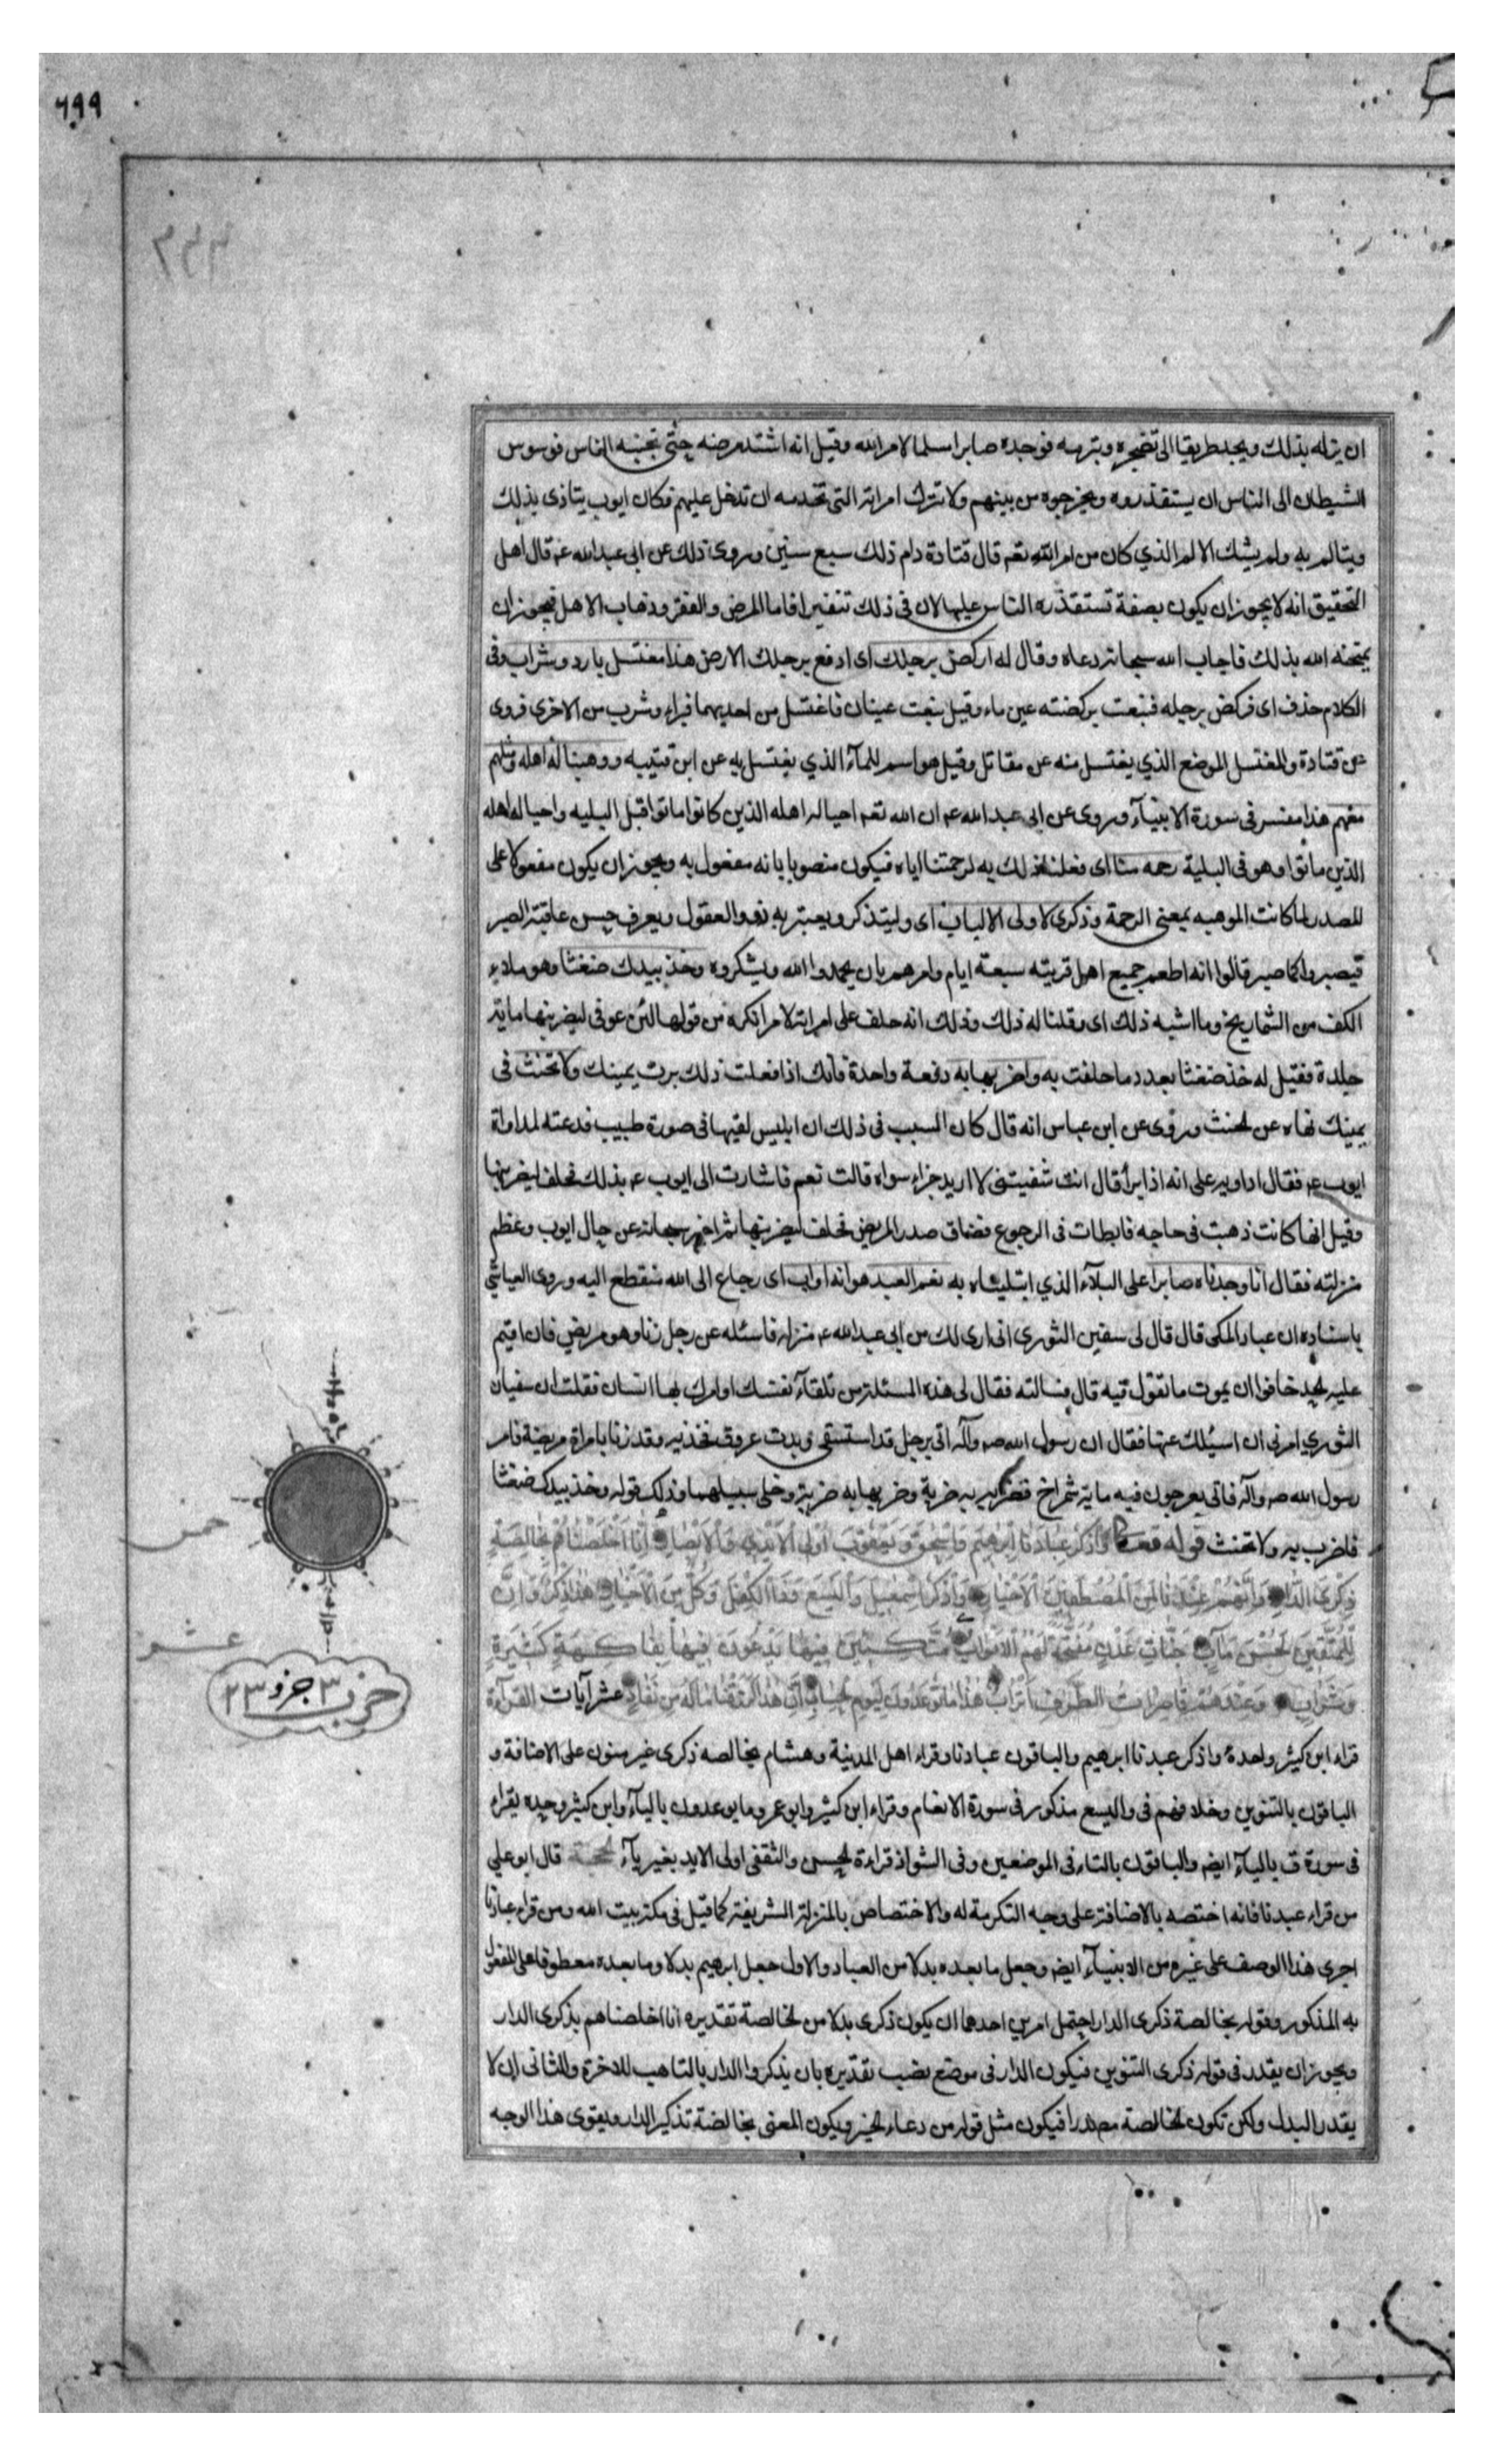 ٦٩٩
ان يزله بذلك ويجد طريقا الى تضجره وتبرمه فوجده صابرا مسلما لامر الله وقيل انه اشتد مرضه حتى تجنبه الناس فوسوس
الشيطان الى الناس ان يستقذروه ويخرجوه من بينهم ولا تترك امراته التي تخدمه ان تدخل عليهم فكان ايوب يتاذى بذلك
ويتالم به ولم يشك الالم الذي كان من امر الله تعم قال قتادة دام ذلك سبع سنين وروى ذلك عن ابى عبد الله عم قال اهل
التحقيق انه لا يجوز ان يكون بصفة تستقذره الناس عليها لان فى ذلك تنفيرا فاما المرض والفقر وذهاب الاهل فيجوز ان
يمتحنه الله بذلك فاجاب الله سبحانه دعاه وقال له اركض برجلك اى ادفع برجلك الارض هذا مغتسل بارد وشراب وفى
الكلام حذف اى فركض برجله فنبعت بركضته عين ماء وقيل نبعت عينان فاغتسل من احديهما فبراء وشرب من الاخرى فروى
عن قتادة والمغتسل الموضع الذي يغتسل منه عن مقاتل وقيل هو اسم للمآء الذي يغتسل به عن ابن قتيبه ووهبنا له اهله ومثلهم
معهم هذا مفسر فى سورة الانبيآء وروى عن ابى عبد الله عم ان الله تعم احيا له اهله الذين كانوا ماتوا قبل البليه واحيا له اهله
الذين ماتوا وهو فى البلية رحمه منا اى فعلنا ذلك به لرحمتنا اياه فيكون منصوبا بانه مفعول به ويجوز ان يكون مفعولا على
المصدر لما كانت الموهبه بمعنى الرحمة وذكرى لاولى الالباب اى وليتذكر ويعتبر به ذوو العقول ويعرف حسن عاقبة الصبر
فيصبروا كما صبر قالوا انه اطعم جميع اهل قريته سبعة ايام وامرهم بان يحمدوا الله ويشكروه وخذ بيدك ضغثا وهو ملاء
الكف من الشماريخ وما اشبه ذلك اى وقلنا له ذلك وذلك انه حلف على امراته لامر انكره من قولها لئن عوفى ليضربنها مائة
جلدة فقيل له خذ ضغثا بعدد ما حلفت به واضربها به دفعة واحدة فانك اذا فعلت ذلك برت يمينك ولا تحنث فى
يمينك نهاه عن الحنث وروى عن ابن عباس انه قال كان السبب فى ذلك ان ابليس لقيها فى صورة طبيب فدعته لمداواة
ايوب عم فقال اداويه على انه اذا برأ قال انت شفيتنى لا اريد جزاء سواه قالت نعم فاشارت الى ايوب عم بذلك فحلف ليضربنها
وقيل انها كانت ذهبت فى حاجه فابطات فى الرجوع فضاق صدر المريض فحلف ليضربنها ثم اخبر سبحانه عن حال ايوب وعظم
منزلته فقال انا وجدناه صابرا على البلآء الذي ابتليناه به نعم العبد هو انه اواب اى رجاع الى الله منقطع اليه وروى العياشى
باسناده ان عباد المكى قال قال لى سفين الثورى انى ارى لك من ابى عبد الله عم منزله فاسئله عن رجل زنا وهو مريض فان اقيم
عليه الحد خافوا ان يموت ما تقول فيه قال فسالته فقال لى هذه المسئلة من تلقآء نفسك او امرك بها انسان فقلت ان سفيان
الثوري امرنى ان اسئلك عنها فقال ان رسول الله صم وآله اتى برجل قد استسقى وبدت عروق فخذيه وقد زنا بامراة مريضة فامر
رسول الله صم وآله فاتى بعرجون فيه مائة شمراخ فضربه به ضربة وضربها به ضربة وخلى سبيلهما وذلك قوله وخذ بيدك ضغثا
فاضرب به ولا تحنث قوله تعم وَاذْكُرْ عِبَادَنَا إِبْرٰهِيمَ وَاِسْحٰقَ وَيَعْقُوبَ اُولِى الْاَيْدِى وَالْاَبْصَارِ اِنَّا اَخْلَصْنَاهُمْ بِخَالِصَةٍ
ذِكْرَى الدَّارِ وَاِنَّهُمْ عِنْدَنَا لَمِنَ الْمُصْطَفَيْنَ الْاَخْيَارِ وَاذْكُرْ اِسْمٰعِيلَ وَالْيَسَعَ وَذَا الْكِفْلِ وَكُلٌّ مِنَ الْاَخْيَارِ هٰذَا ذِكْرٌ وَاِنَّ
لِلْمُتَّقِينَ لَحُسْنَ مَآبٍ جَنَّاتِ عَدْنٍ مُفَتَّحَةً لَهُمُ الْاَبْوَابُ مُتَّكِئِينَ فِيهَا يَدْعُونَ فِيهَا بِفَاكِهَةٍ كَثِيرَةٍ
وَشَرَابٍ وَعِنْدَهُمْ قَاصِرَاتُ الطَّرْفِ اَتْرَابٌ هٰذَا مَا تُوعَدُونَ لِيَوْمِ الْحِسَابِ اِنَّ هٰذَا لَرِزْقُنَا مَا لَهُ مِنْ نَفَادٍ عشر آيات القرآءة
قراء ابن كثير وحده واذكر عبدنا ابرهيم والباقون عبادنا وقراء اهل المدينة وهشام بخالصه ذكرى غير منون على الاضافة و
الباقون بالتنوين وخلافهم فى واليسع مذكور فى سورة الانعام وقراء ابن كثير وابو عمرو ما يوعدون باليآء وابن كثير وحده يقراء
فى سورة ق باليآء ايضم والباقون بالتاء فى الموضعين وفى الشواذ قراءة الحسن والثقفى اولى الايد بغير يآء الحجة قال ابو علي
من قراء عبدنا فانه اختصه بالاضافة على وجه التكرمة له والاختصاص بالمنزلة الشريفة كما قيل فى مكة بيت الله ومن قراء عبادنا
اجرى هذا الوصف على غيره من الانبيآء ايضم وجعل ما بعده بدلا من العباد والاول جعل ابرهيم بدلا وما بعده معطوفا على المفعول
به المذكور وقوله بخالصة ذكرى الدار احتمل امرين احدهما ان يكون ذكرى بدلا من الخالصة تقديره انا اخلصناهم بذكرى الدار
ويجوز ان يقدر فى قوله ذكرى التنوين فيكون الدار فى موضع نصب تقديره بان يذكروا الدار بالتاهب للاخرة والثانى ان لا
يقدر البدل ولكن تكون الخالصة مصدرا فيكون مثل قوله من دعاء الخير ويكون المعنى بخالصة تذكير الدار ويقوى هذا الوجه
خمس
عشر
حزب ٣ جزو ٢٣